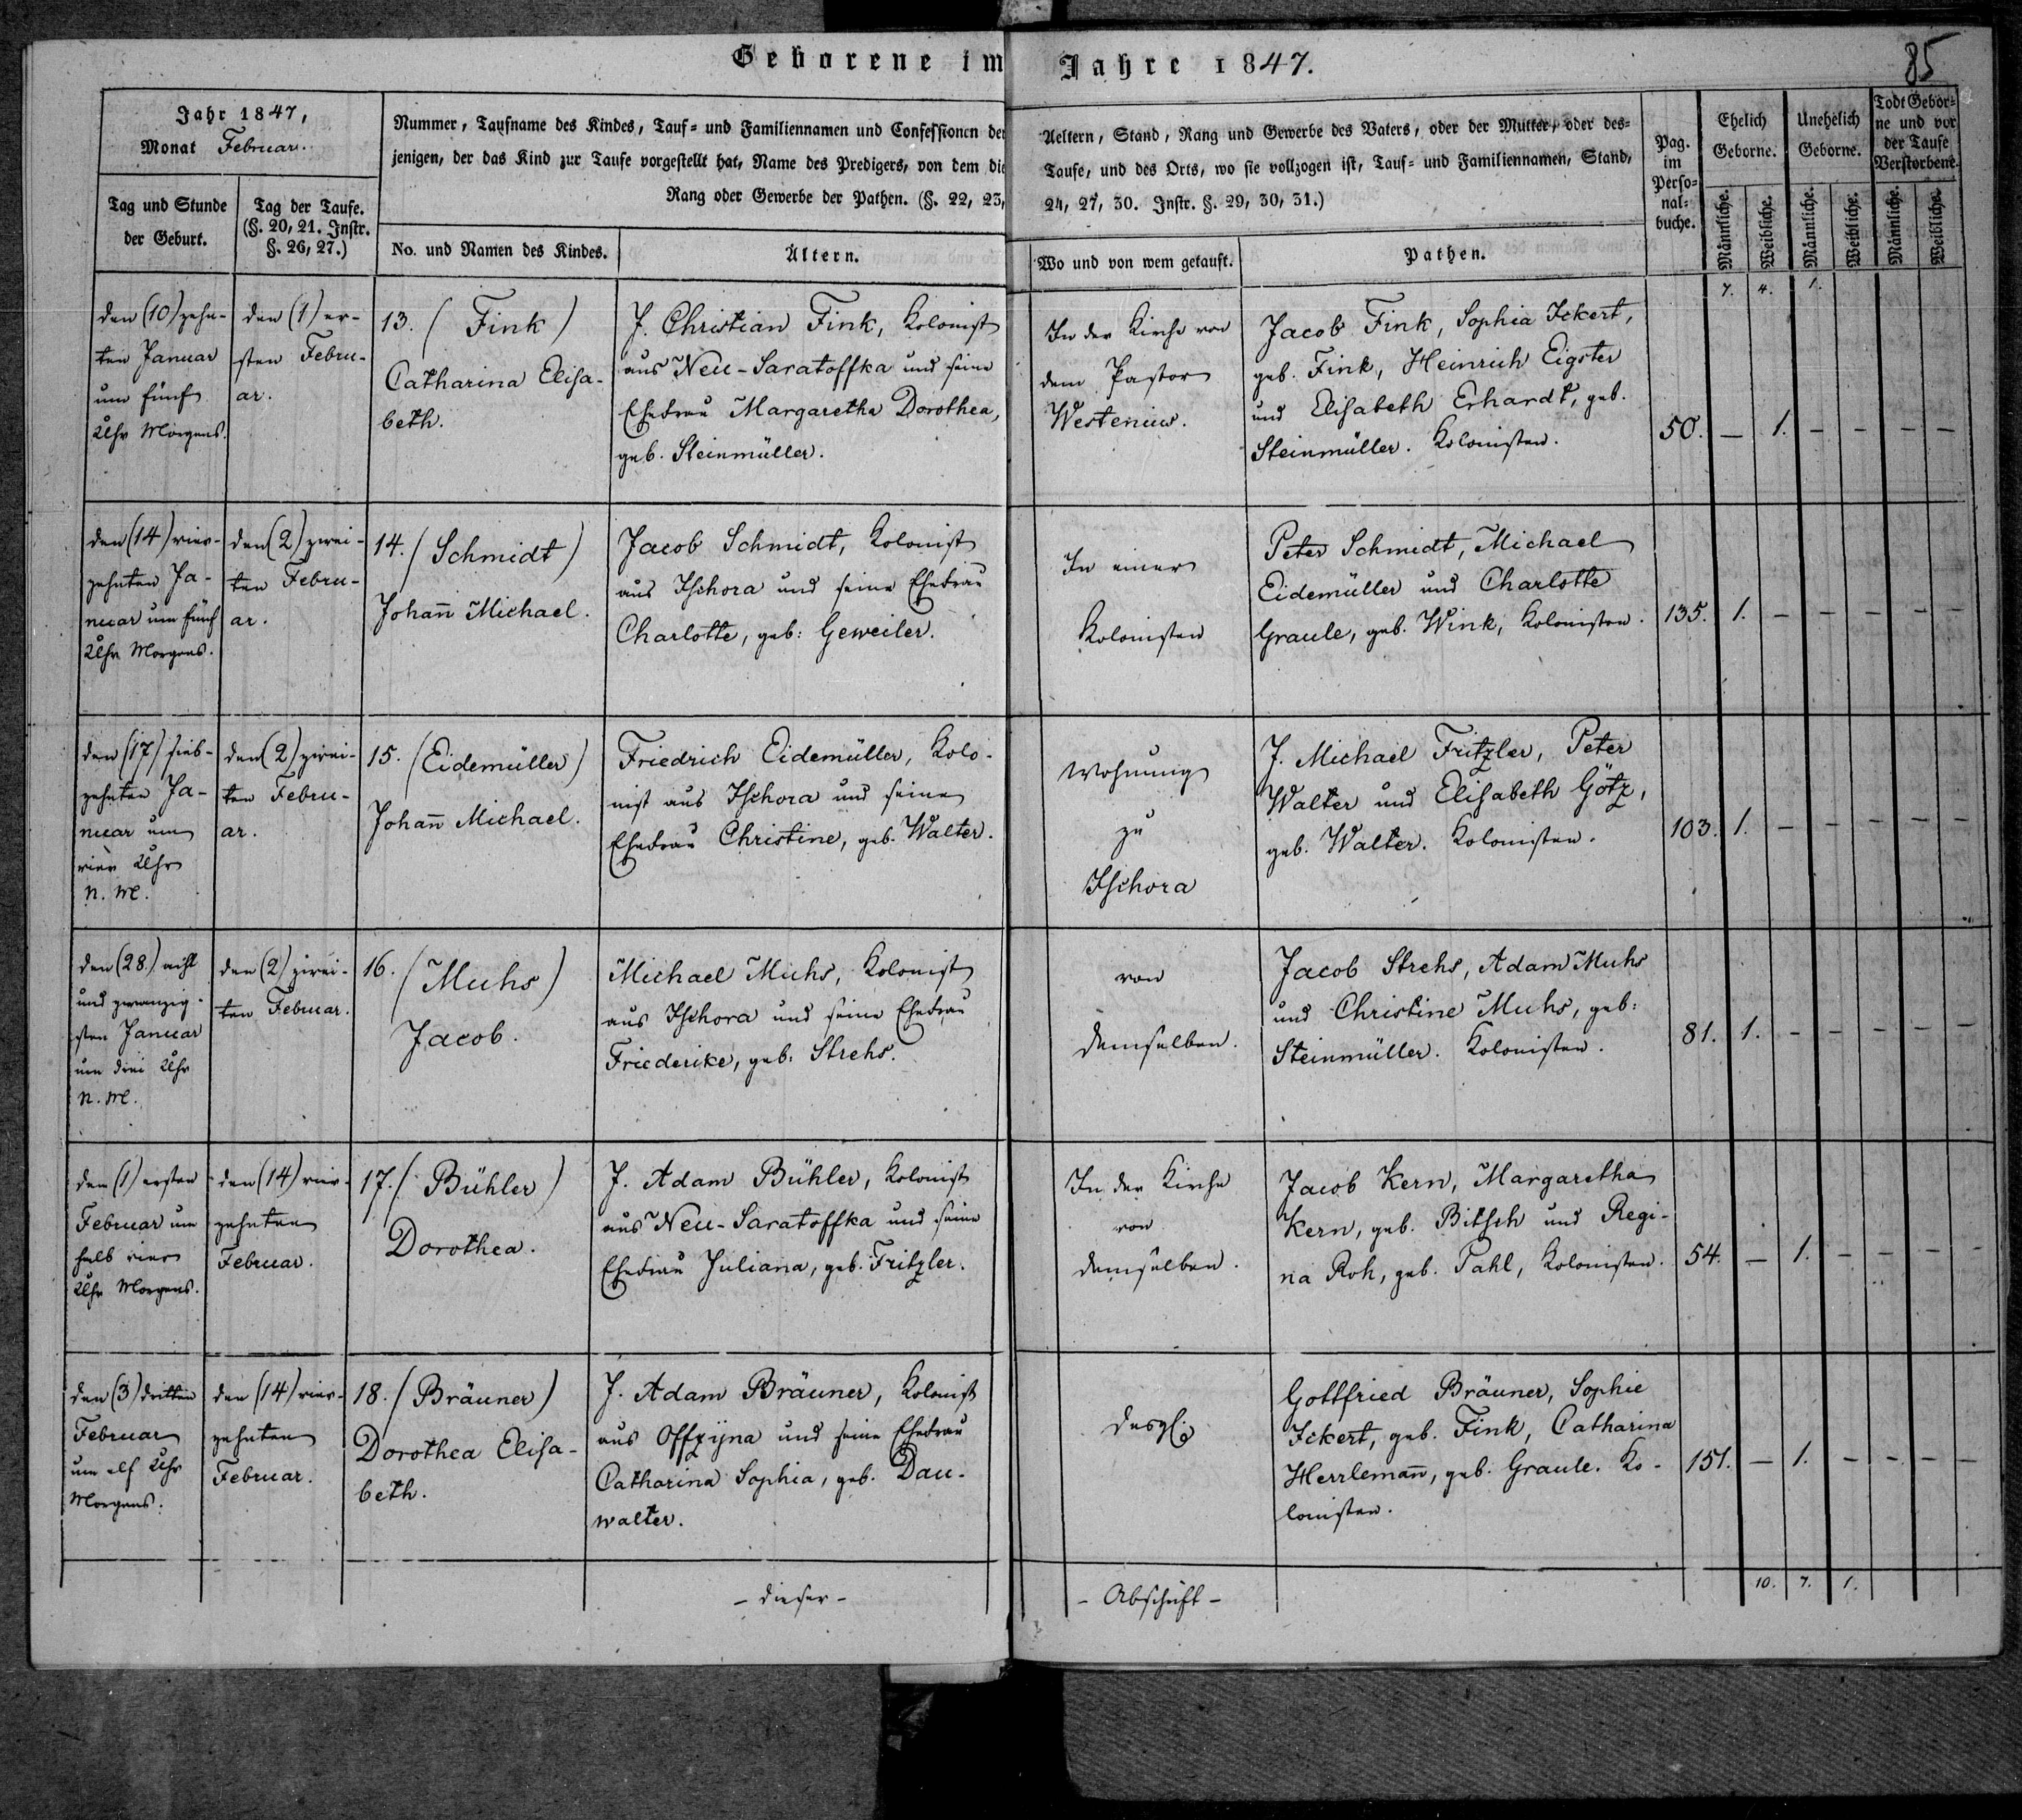 Geborene im Jahre 1847.
85
Jahr 1847,
Monat Februar.
Tag und Stunde
der Geburt.
Tag der Taufe.
(§. 20, 21. Instr.
§. 26, 27.)
Nummer, Taufname des Kindes, Tauf- und Familiennamen und Confessionen der
jenigen, der das Kind zur Taufe vorgestellt hat, Name des Predigers, von dem die
Rang oder Gewerbe der Pathen. (§. 22, 23,
No. und Namen des Kindes.
Ältern.
Aeltern, Stand, Rang und Gewerbe des Vaters, oder der Mutter, oder des-
Taufe, und des Orts, wo sie vollzogen ist, Tauf- und Familiennamen, Stand,
24, 27, 30. Instr. §. 29, 30, 31.)
Wo und von wem getauft.
Pathen.
Pag.
im
Perso-
nal-
buche.
Ehelich
Geborne.
Unehelich
Geborne.
Todt Gebor-
ne und vor
der Taufe
Verstorbene.
Männliche.
Weibliche.
Männliche.
Weibliche.
Männliche.
Weibliche.
7. 4. 1.
den (10) zehn-
ten Januar
um fünf
Uhr Morgens.
den (1) er-
sten Febru-
ar.
13. (Fink)
Catharina Elisa-
beth.
J. Christian Fink, Kolonist
aus Neu-Saratoffka und seine
Ehefrau Margaretha Dorothea,
geb. Steinmüller.
In der Kirche von
dem Pastor
Westenius.
Jacob Fink, Sophia Ickert,
geb. Fink, Heinrich Eigster
und Elisabeth Erhardt, geb.
Steinmüller. Kolonisten.
50. — 1. — — — —
den (14) vier-
zehnten Ja-
nuar um fünf
Uhr Morgens.
den (2) zwei-
ten Febru-
ar.
14. (Schmidt)
Johañ Michael.
Jacob Schmidt, Kolonist
aus Ischora und seine Ehefrau
Charlotte, geb: Geweiler.
In einer
Kolonisten
Peter Schmidt, Michael
Eidemüller und Charlotte
Graule, geb. Wink, Kolonisten.
135. 1. — — — — —
den (17) sieb-
zehnten Ja-
nuar um
vier Uhr
N. M.
den (2) zwei-
ten Febru-
ar.
15. (Eidemüller)
Johañ Michael.
Friedrich Eidemüller, Kolo-
nist aus Ischora und seine
Ehefrau Christine, geb. Walter.
Wohnung
zu
Ischora
J. Michael Fritzler, Peter
Walter und Elisabeth Götz,
geb. Walter. Kolonisten.
103. 1. — — — — —
den (28.) acht
und zwanzig-
sten Januar
um drei Uhr
N. M.
den (2) zwei-
ten Februar.
16. (Muhs)
Jacob.
Michael Muhs, Kolonist
aus Ischora und seine Ehefrau
Friederike, geb: Strehs.
von
demselben.
Jacob Strehs, Adam Muhs
und Christine Muhs, geb:
Steinmüller. Kolonisten.
81. 1. — — — — —
den (1) ersten
Februar um
halb vier
Uhr Morgens.
den (14) vier-
zehnten
Februar.
17. (Bühler)
Dorothea.
J. Adam Bühler, Kolonist
aus Neu-Saratoffka und seine
Ehefrau Juliana, geb. Fritzler.
In der Kirche
von
demselben.
Jacob Kern, Margaretha
Kern, geb. Bitsch und Regi-
na Roh, geb. Pahl, Kolonisten.
54. — 1. — — — —
den (3) dritten
Februar
um elf Uhr
Morgens.
den (14) vier-
zehnten
Februar.
18. (Bräuner)
Dorothea Elisa-
beth.
J. Adam Bräuner, Kolonist
aus Offzijna und seine Ehefrau
Catharina Sophia, geb. Dau-
walter.
desgl.
Gottfried Bräuner, Sophie
Ickert, geb. Fink, Catharina
Herrlemañ, geb. Graule. Ko-
lonisten.
151. — 1. — — — —
- dieser -
- Abschrift -
10. 7. 1.